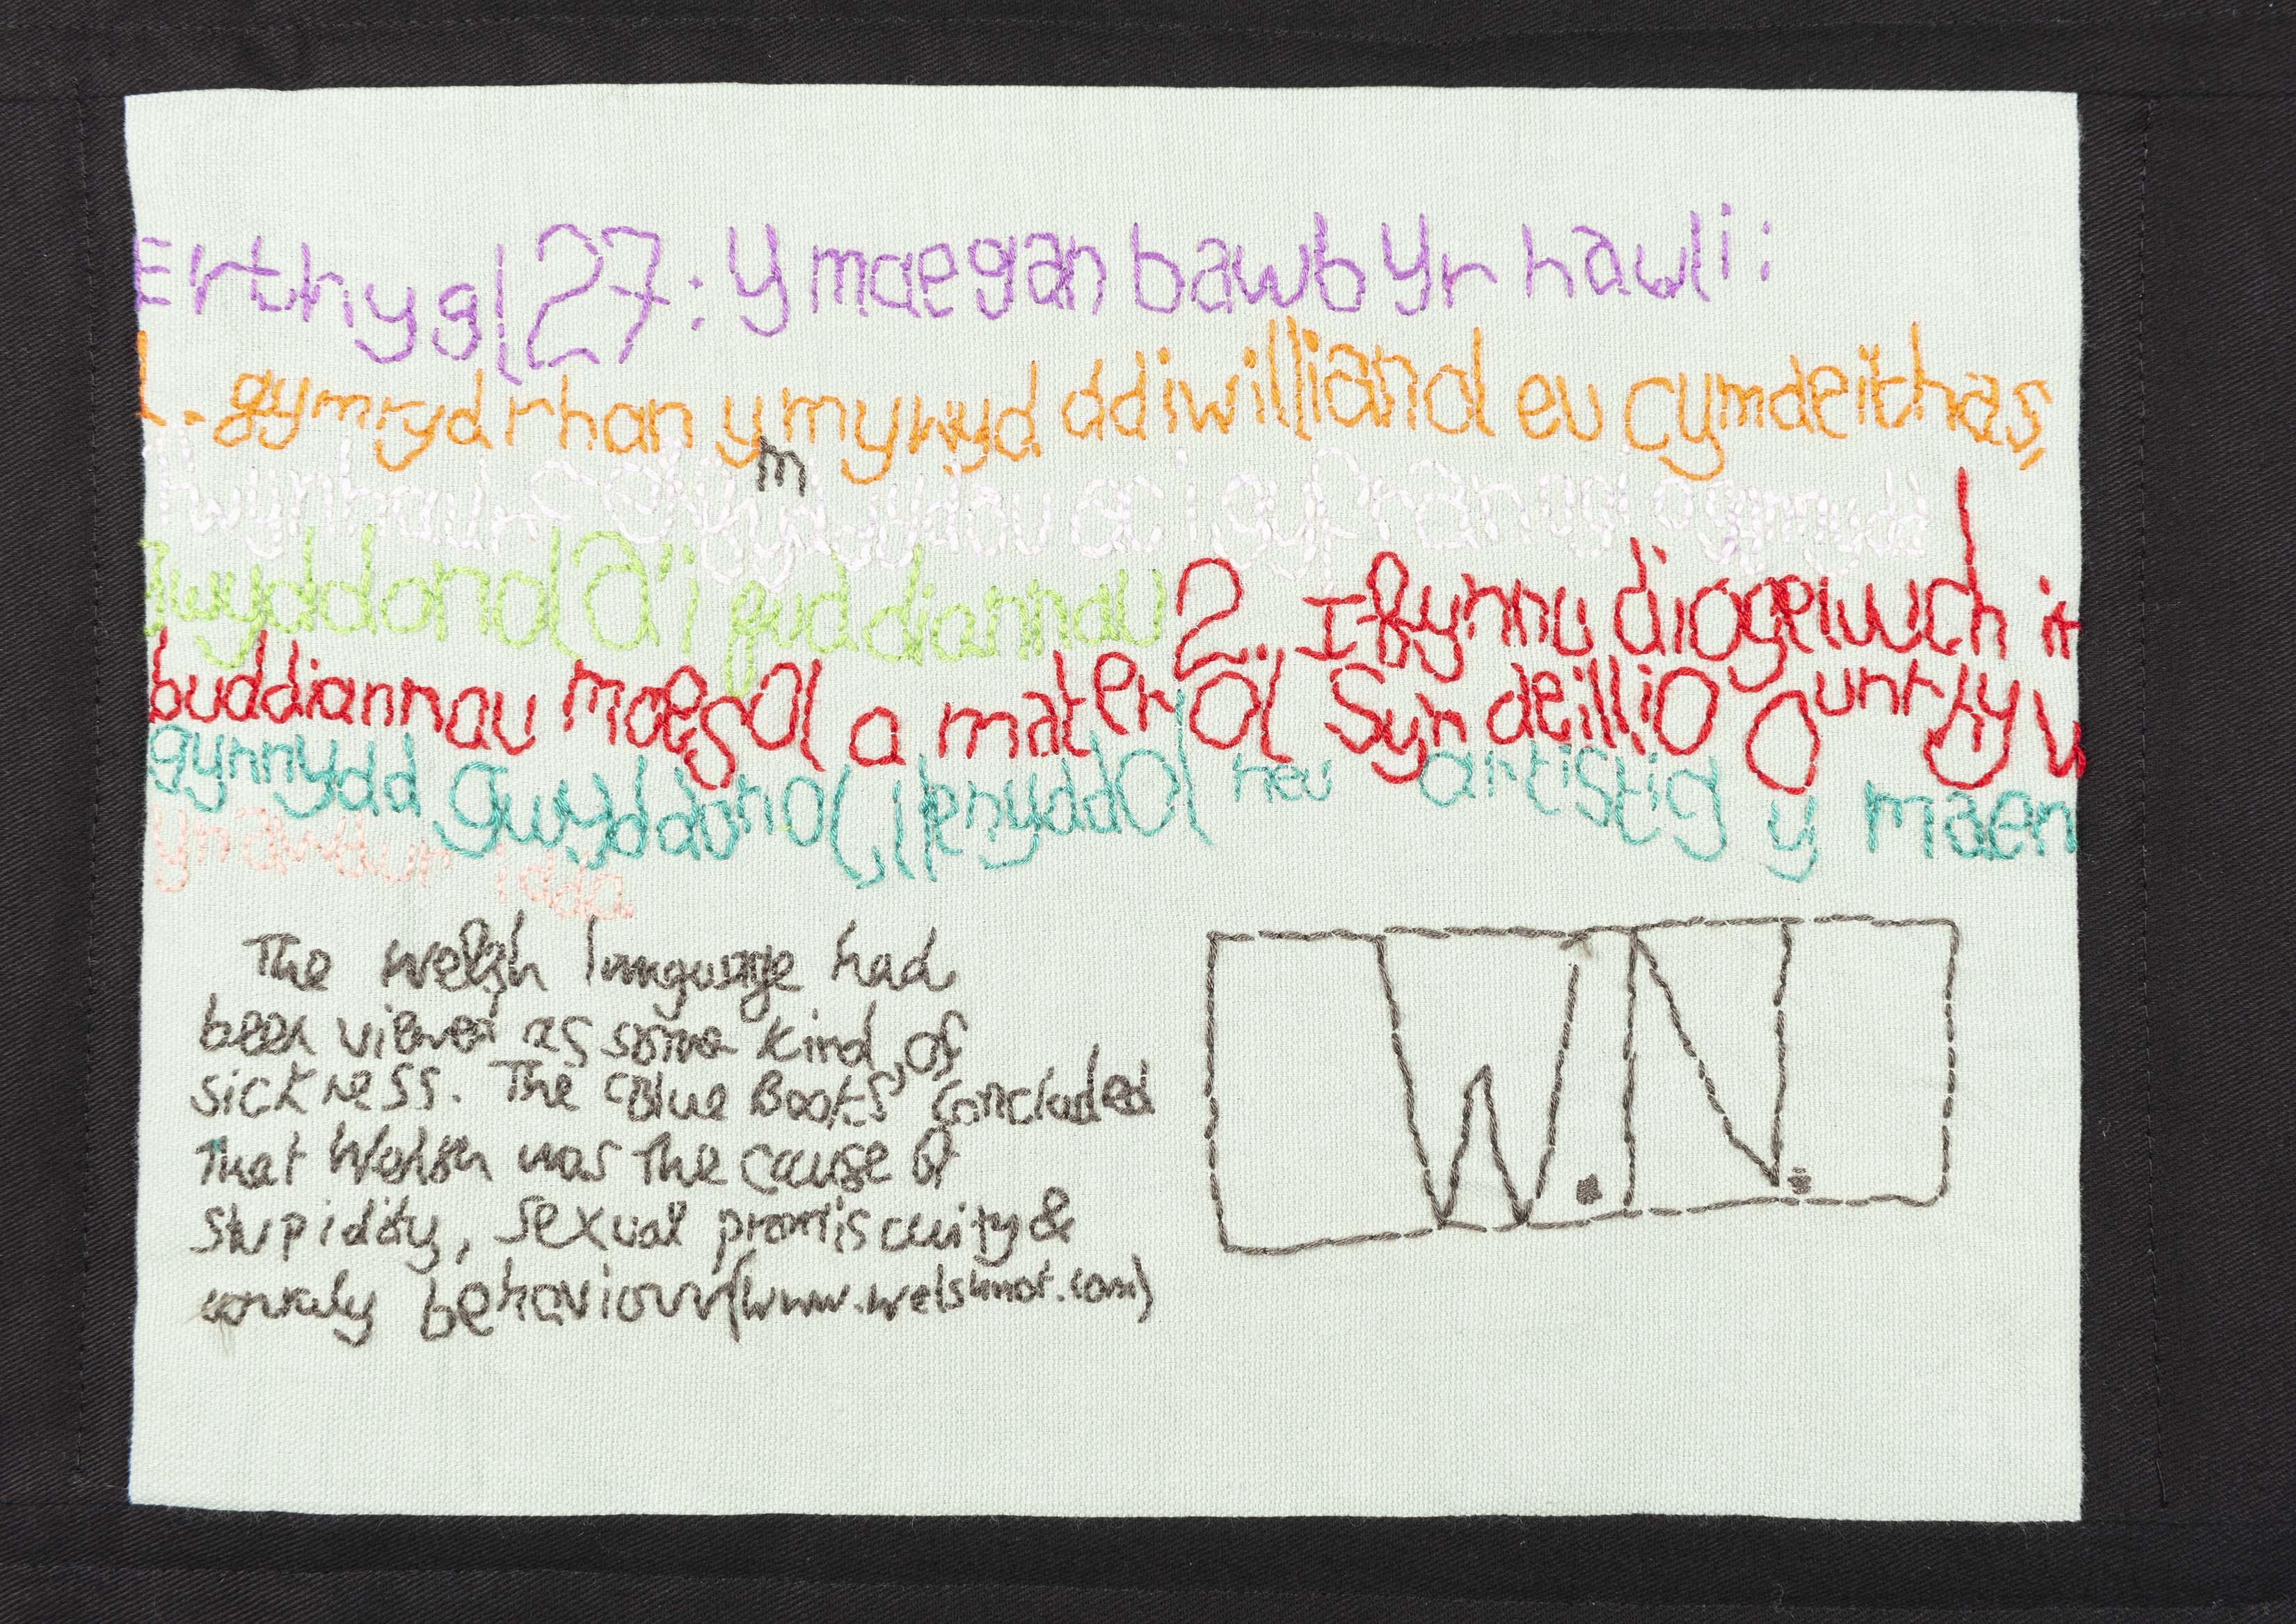 Erthygl 27: Y mae gan bawb yr hawli:
1. gymryd rhan ym mywyd ddiwilliandl eu cymdeithas,
ac i gyfranogi o gynnydd
gwyddonol a'i fuddiannau 2. I fynnu diogelwch i'r
buddiannau moesol a materol Syn deillio O unrhyw
gynnydd gwyddonol, llenyddol neu artistig y maen
yn awdur iddo
The Welsh language had
been viewed as some kind of
sickness. The 'Blue Books' concluded
that Welsh was the cause of
stupidity, sexual promiscuity &
unruly behaviour (www.welshnot.com)
W.N.